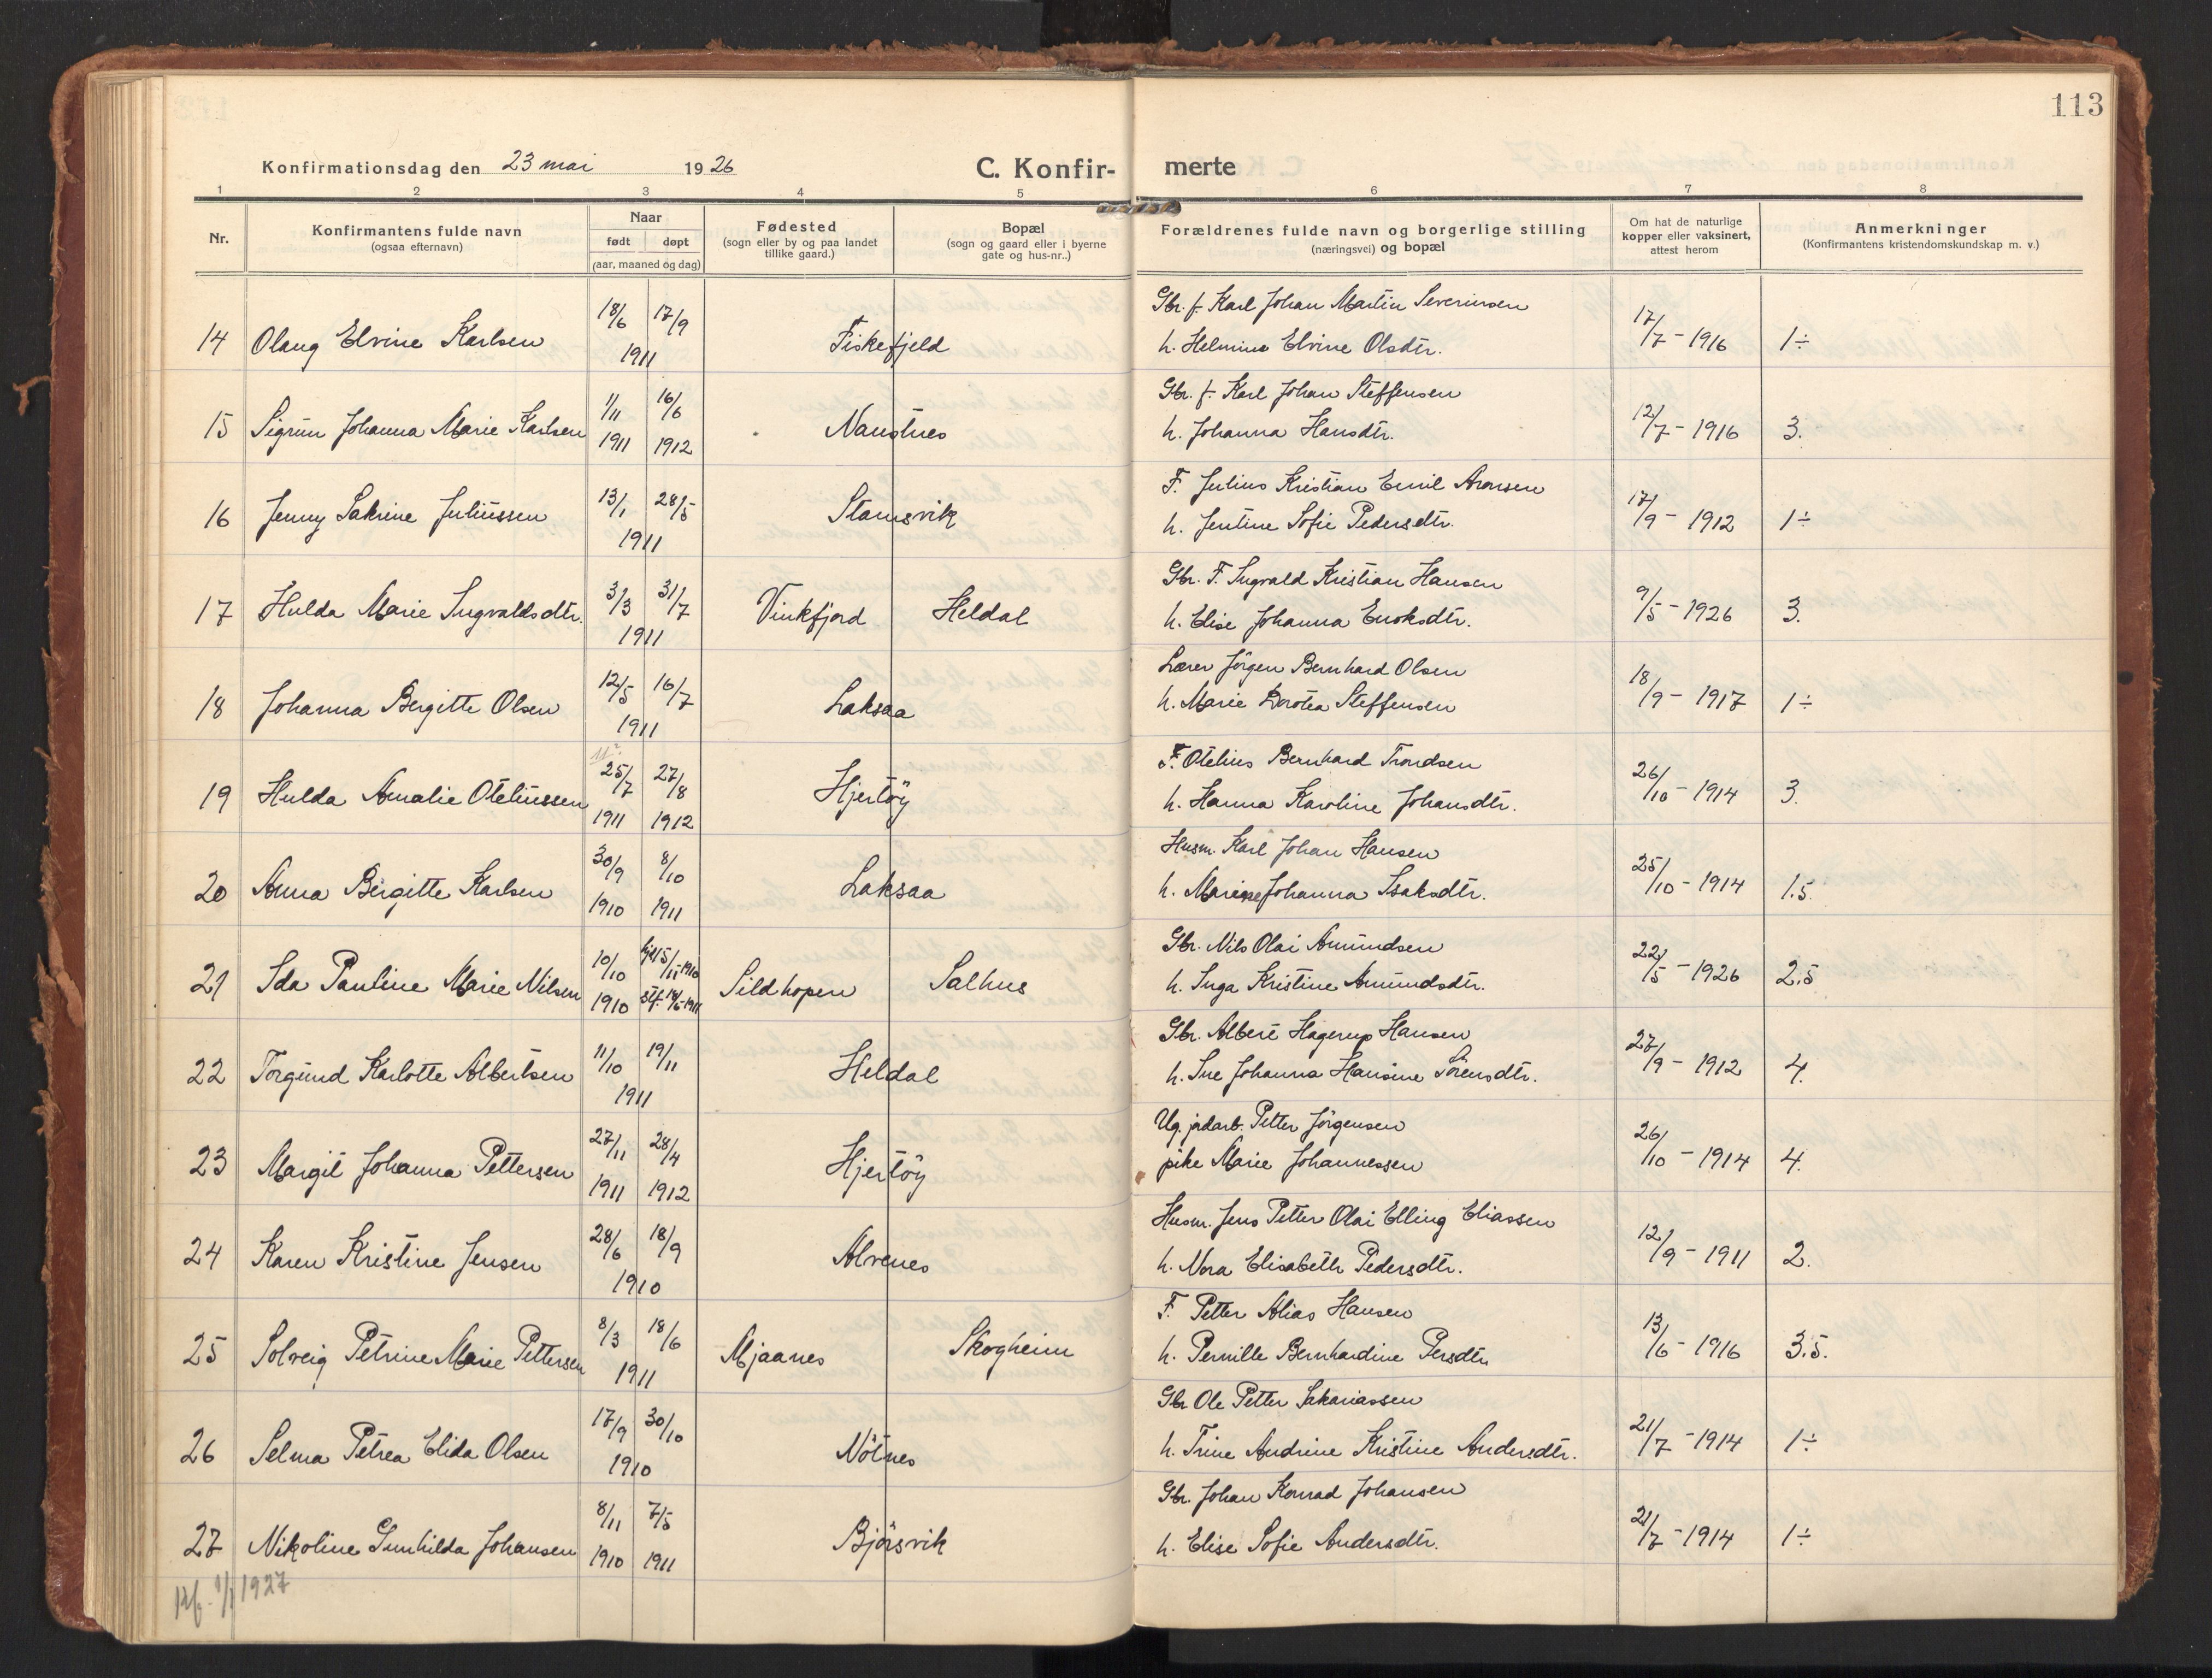 113
Konfirmationsdag den 23 mai 1926 C. Konfir- merte
1 2 3 4 5 6 7 8
Nr. Konfirmantens fulde navn (ogsaa efternavn) Naar født døpt (aar, maaned og dag) Fødested (sogn eller by og paa landet tillike gaard.) Bopæl (sogn og gaard eller i byerne gate og hus-nr..) Forældrenes fulde navn og borgerlige stilling (næringsvei) og bopæl Om hat de naturlige kopper eller vaksinert, attest herom Anmerkninger (Konfirmantens kristendomskundskap m. v.)
14 Olaug Elvine Karlsen 18/6 17/9 1911 Fiskefjeld Gbr. f. Karl Johan Martin Severinsen
h. Helmine Elvine Olsdtr. 17/7 - 1916 1÷
15 Sigrun Johanna Marie Karlsen 1/11 1911 16/6 1912 Naustnes Gbr. f. Karl Johan Steffensen
h. Johanna Hansdtr. 12/7 - 1916 3.
16 Jenny Sakrine Juliussen 13/1 28/5 1911 Stamsvik F. Julius Kristian Emil Aronsen
h. Jentine Sofie Pedersdtr. 17/9 - 1912 1÷
17 Hulda Marie Ingvaldsdtr. 3/3 31/7 1911 Vinkfjord Heldal Gbr. F. Ingvald Kristian Hansen
h. Elise Johanna Enoksdtr. 9/5 - 1926 3.
18 Johanna Bergitte Olsen 12/5 16/7 1911 Laksaa Lærer Jörgen Bernhard Olsen
h. Marie Dorotea Steffensen 18/9 - 1917 1÷
19 Hulda Amalie Oteliussen 25/7 1911 27/8 1912 Hjertöy F. Otelius Bernhard Trondsen
h. Hanna Karoline Johansdtr. 26/10 - 1914 3.
20 Anna Birgitte Karlsen 30/9 1910 8/10 1911 Laksaa Husm. Karl Johan Hansen
h. Marine Johanna Isaksdtr. 25/10 - 1914 1.5.
21 Ida Pauline Marie Nilsen 10/10 1910 hjd 15/11-1910 stf. 14/6-1911 Sildhopen Salhus Gbr. Nils Olai Amundsen
h. Inga Kristine Amundsdtr. 22/5 - 1926 2.5
22 Torgund Karlotte Albertsen 11/10 19/11 1911 Heldal Gbr. Albert Hagerup Hansen
h. Ine Johanna Hansine Sörensdtr. 27/9 - 1912 4.
23 Margit Johanna Pettersen 27/11 1911 28/4 1912 Hjertöy Ug. jadarb. Petter Jörgensen
pike Marie Johannessen 26/10 - 1914 4.
24 Karen Kristine Jensen 28/6 18/9 1910 Alvenes Husm. Jens Petter Olai Elling Eliassen
h. Nora Elisabeth Pedersdtr. 12/9 - 1911 2.
25 Solveig Petrine Marie Pettersen 8/3 18/6 1911 Mjaanes Skogheim F. Petter Alias Hansen
h. Pernille Bernhardine Persdtr. 13/6 - 1916 3.5.
26 Selma Petrea Elida Olsen 17/9 30/10 1910 Nötnes Gbr Ole Petter Sakariassen
h. Trine Andrine Kristine Andersdtr. 21/7 - 1914 1÷
27 Nikoline Gunhilda Johansen 8/11 1910 7/5 1911 Björsvik Gbr. Johan Konrad Johansen
h. Elise Sofie Andersdtr. 21/7 - 1914 1÷
1/1 1927